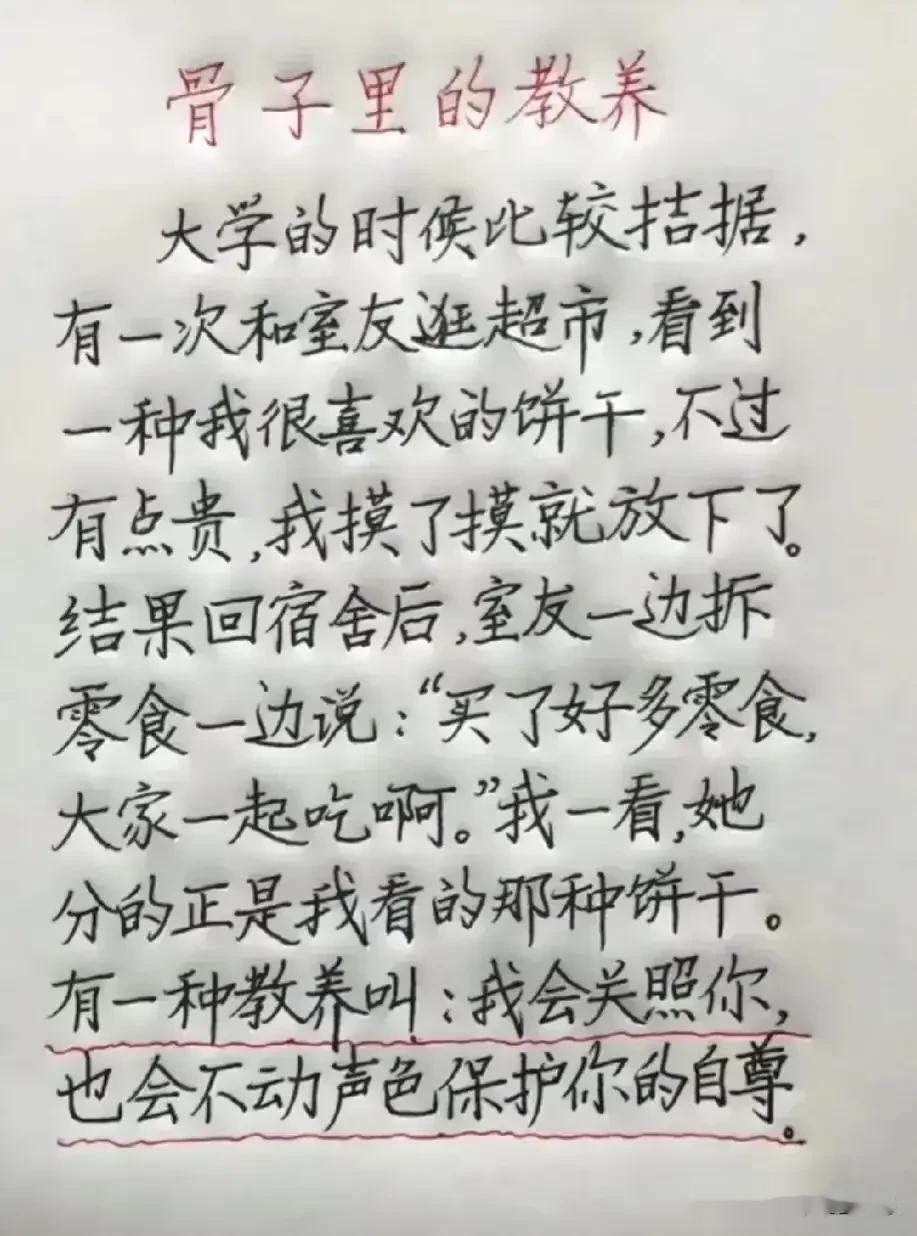 骨子里的教养
大学的时候比较拮据，
有一次和室友逛超市，看到
一种我很喜欢的饼干，不过
有点贵，我摸了摸就放下了。
结果回宿舍后，室友一边拆
零食一边说：“买了好多零食，
大家一起吃啊。”我一看，她
分的正是我看的那种饼干。
有一种教养叫：我会关照你，
也会不动声色保护你的自尊。